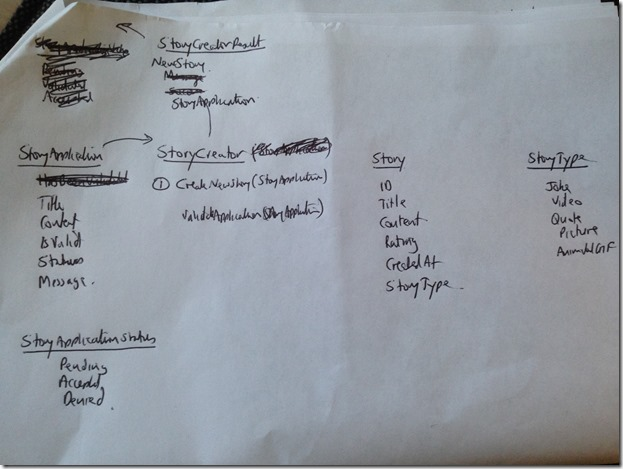 StoryCreatorResult
NewStory
StoryApplication
StoryApplication
Title
Content
IsValid
Status
Message.
StoryCreator
① CreateNewStory(StoryApplication)
ValidateApplication(StoryApplication)
Story
ID
Title
Content
Rating
CreatedAt
StoryType
StoryType
Joke
Video
Quote
Picture
AnimatedGIF
StoryApplicationStatus
Pending
Accepted
Denied.